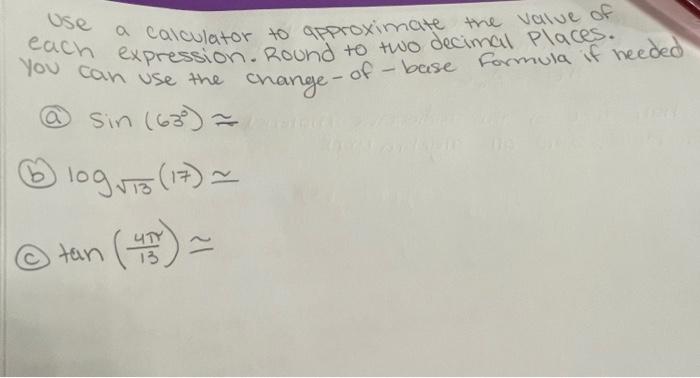 Use a calculator to approximate the value of
each expression. Round to two decimal places.
You can use the change-of-base formula if needed
ⓐ sin (63°) ≈
ⓑ log√13 (17) ≃
ⓒ tan (4π/13) ≃